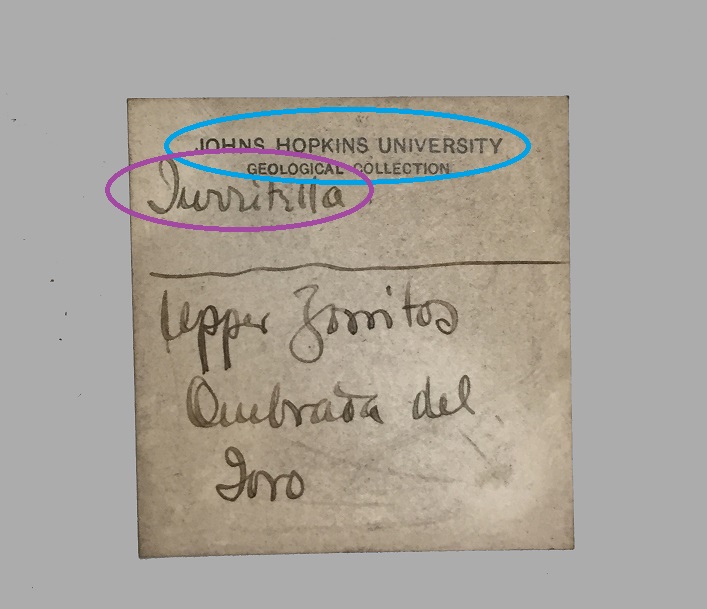 JOHNS HOPKINS UNIVERSITY
GEOLOGICAL COLLECTION
Turritilla
Upper Zorritos
Quebrada del
Toro